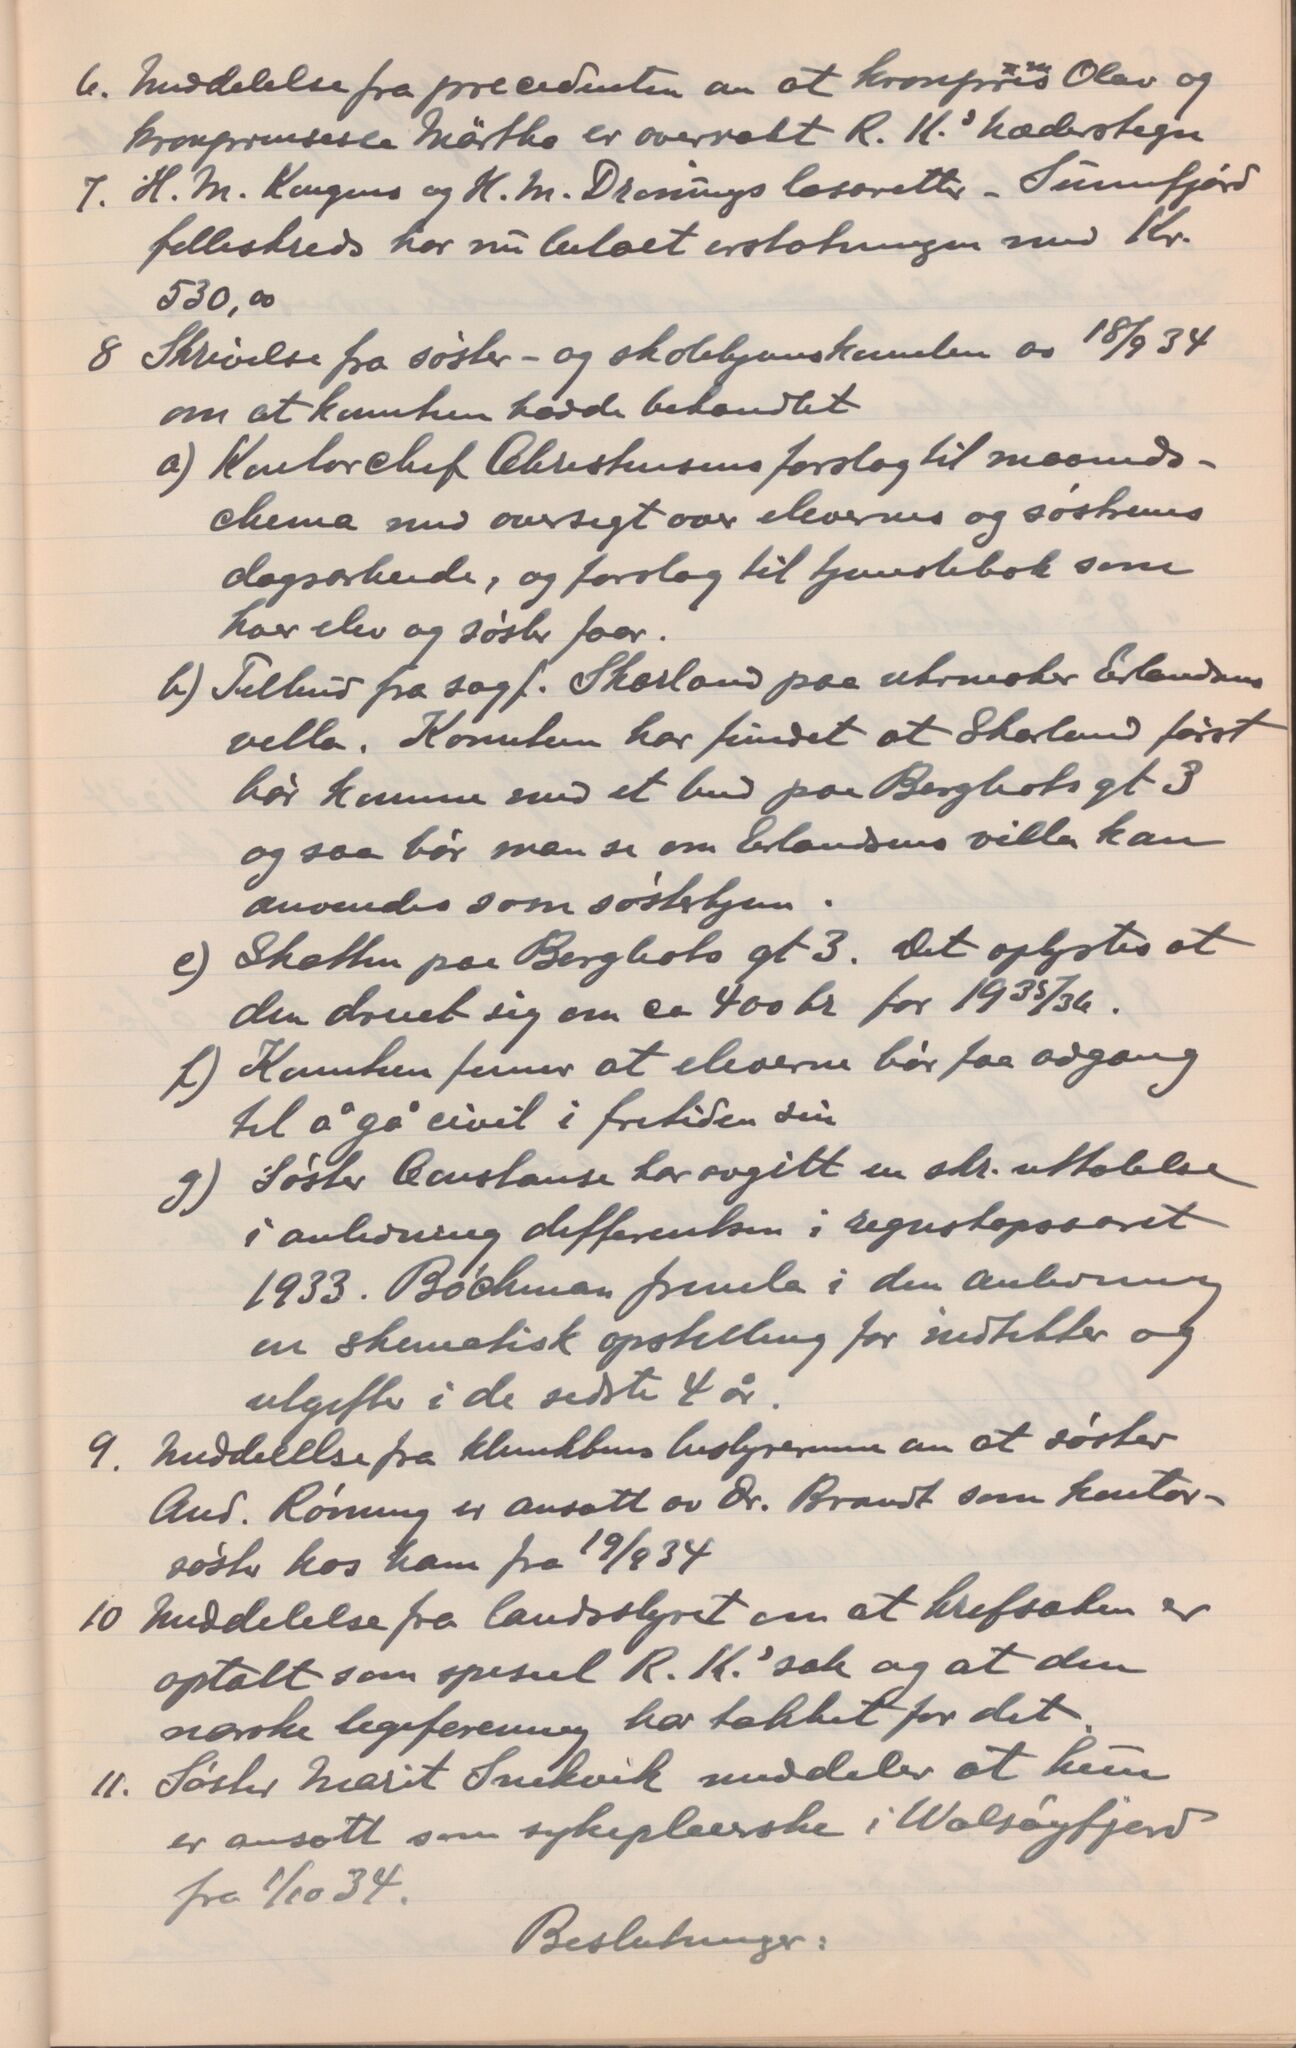 6. Meddelelse fra precedenten om at kronprins Olav og
kronprinsesse Märtha er overrakt R. K.'s hæderstegn
7. H. M. Kongens og H. M. Dronnings lasaretter - Sunnfjord
felleskreds har nu betalt erstatningen med Kr.
530,00
8 Skrivelse fra søster- og skolehjemskomiteen av 18/9 34
om at komiteen hadde behandlet
a) Kontorchef Christensens forslag til maaneds-
chema med oversigt over elevernes og søstrenes
dagsarbeide, og forslag til tjenestebok som
hver elev og søster faar.
b) Tilbud fra sagf. Skarland paa uhrmaker Erlandsens
villa. Komiteen har fundet at Skarland først
bør komme med et bud paa Bergljots gt 3
og saa bør man se om Erlandsens villa kan
anvendes som søsterhjem.
e) Skatten paa Bergljots gt 3. Det oplystes at
den dreiet sig om ca 400 kr for 1935/36.
f) Komiteen finner at eleverne bør faa adgang
til å gå civil i fritiden sin
g) Søster Constanse har avgitt en skr. uttalelse
i anledning differensen i regnskapsaaret
1933. Bøckman fremla i den anledning
en skematisk opstilling for indtekter og
utgifter i de sidste 4 år.
9. Meddelelse fra klinikkens bestyrerinne om at søster
And. Røning er ansatt av Dr. Brandt som kontor-
søster hos ham fra 19/9 34
10 Meddelelse fra landsstyret om at krefsaken er
optatt som spesiel R. K.'sak og at den
norske legeforening har takket for det.
11. Søster Marit Snekvik meddeler at hun
er ansatt som sykepleierske i Walsøyfjord
fra 1/10 34.
Beslutninger: